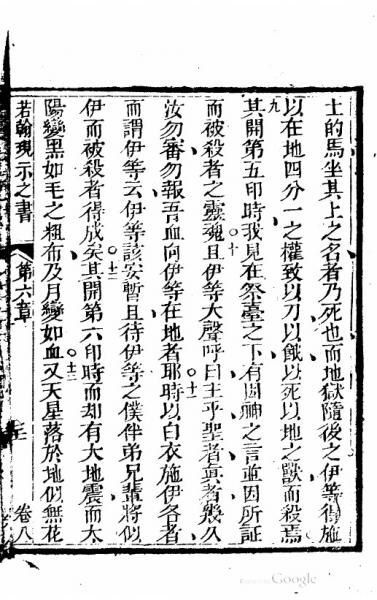 士的馬坐其上之名者乃死也而地獄隨後之伊等得施
以在地四分一之權致以刀以餓以死以地之獸而殺焉
九
其開第五印時我見在祭臺之下有因神之言並因所証
十
而被殺者之靈魂且伊等大聲呼曰主乎聖者眞者幾久
汝勿審勿報吾血向伊等在地者耶時以白衣施伊各者
十一
而謂伊等云伊等該安暫且待伊等之僕伴弟兄輩將似
十二
伊而被殺者得成矣其開第六印時而却有大地震而太
陽變黑如毛之粗布及月變如血又天星落於地似無花
十三
若翰現示之書
第六章
卷八
Google